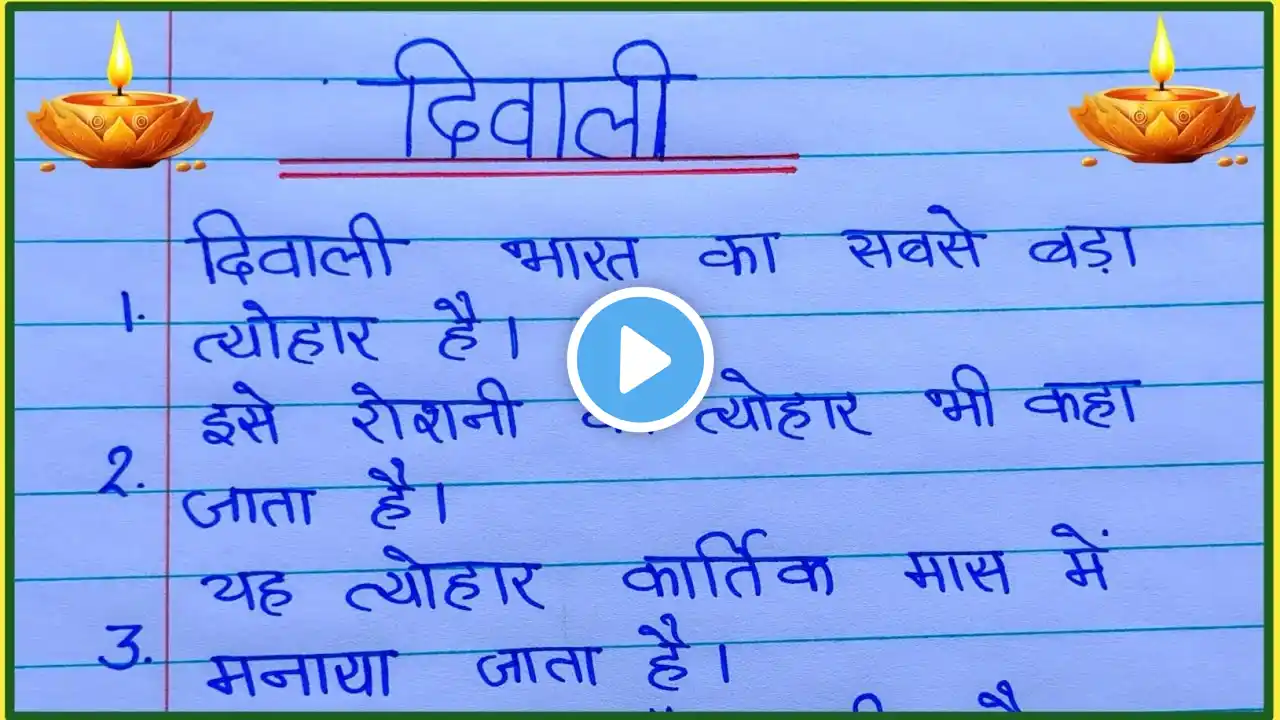 दिवाली
1. दिवाली भारत का सबसे बड़ा
त्योहार है।
2. इसे रोशनी त्योहार भी कहा
जाता है।
3. यह त्योहार कार्तिक मास में
मनाया जाता है।